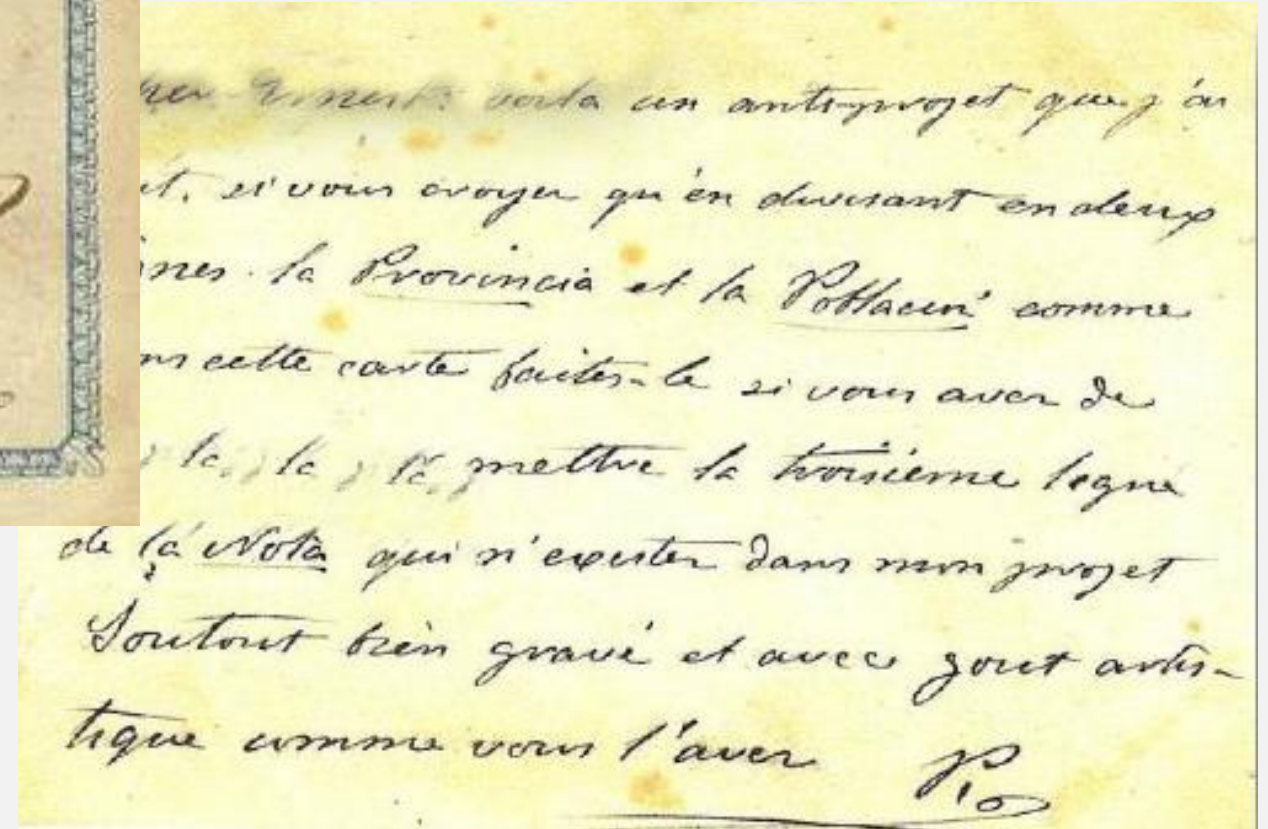 voila un anti-projet que j'ai
si vous croyez qu'en divisant en deux
la Provincia et la Poblacion comme
cette carte faites-le si vous avez de
la la la mettre la troisième ligne
de la Nota qui n'exister dans mon projet
Soutout bien gravé et avec gout artis-
tique comme vous l'avez Pio